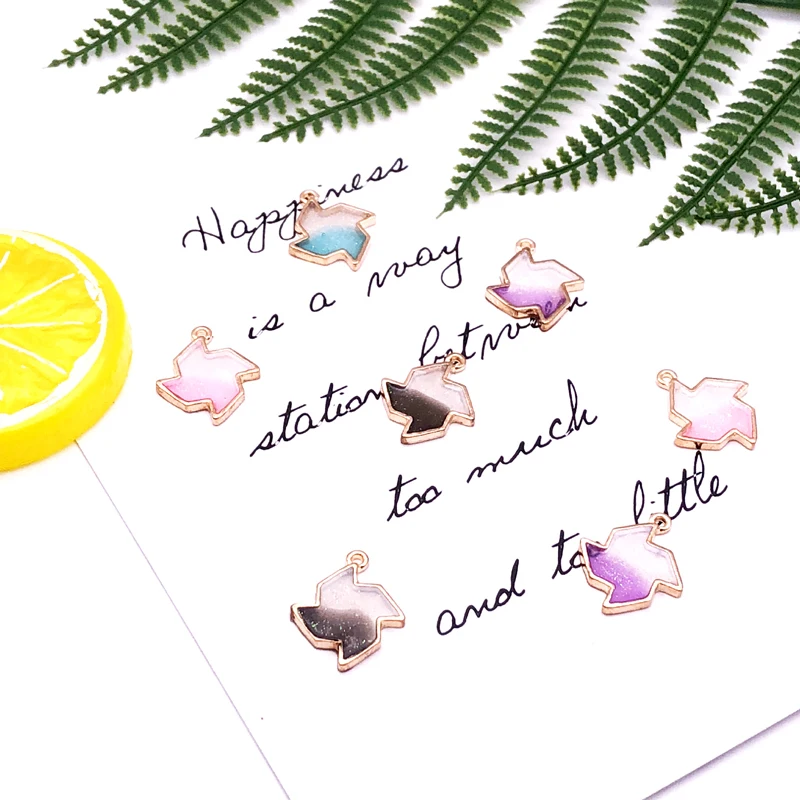 Happiness
is a way
station between
too much
and too little